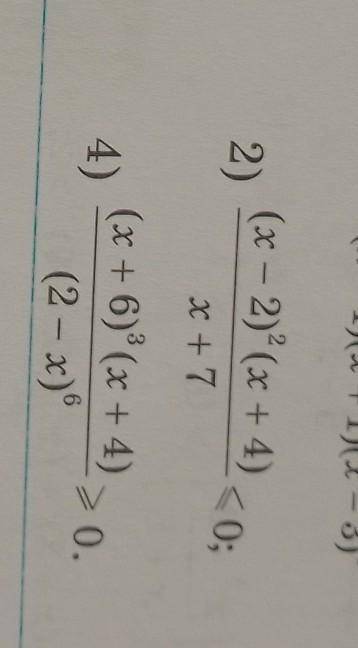 2) (x − 2)²(x + 4) / x + 7 ⩽ 0;
4) (x + 6)³(x + 4) / (2 − x)⁶ ⩾ 0.